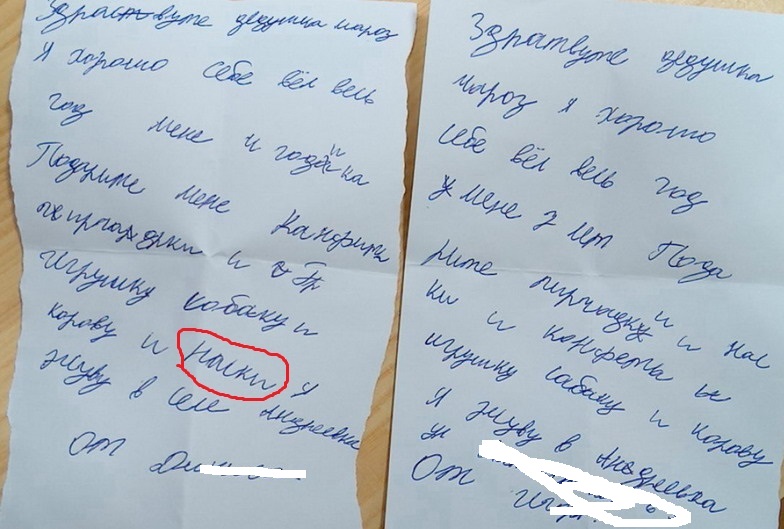 Здраствуте дедушка мароз
Я хорошо себе вёл весь
год мене и годика
Подурите мене Канфиты
и
игрушку собаку и
корову и наски я
жуву в селе Андреевка
От
Здратвуте дедушка
мароз я хорошо
себе вёл весь год
у мене 7 лет Пода
рите пирчадки и нас
ки и конфеты и
игрушку сабаку и корову
Я жуву в Андреевка
От